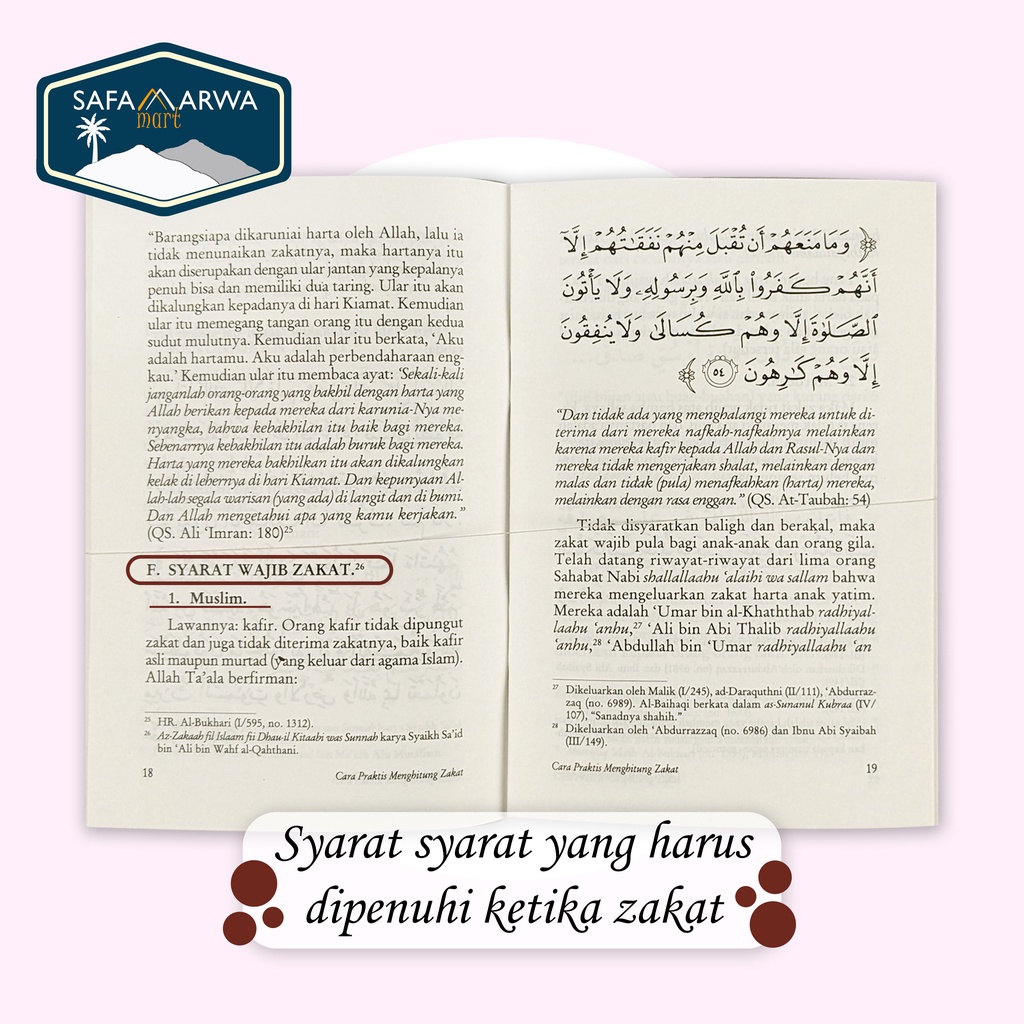 SAFA MARWA
mart
“Barangsiapa dikaruniai harta oleh Allah, lalu ia
tidak menunaikan zakatnya, maka hartanya itu
akan diserupakan dengan ular jantan yang kepalanya
penuh bisa dan memiliki dua taring. Ular itu akan
dikalungkan kepadanya di hari Kiamat. Kemudian
ular itu memegang tangan orang itu dengan kedua
sudut mulutnya. Kemudian ular itu berkata, ‘Aku
adalah hartamu. Aku adalah perbendaharaan eng-
kau.’ Kemudian ular itu membaca ayat: ‘Sekali-kali
janganlah orang-orang yang bakhil dengan harta yang
Allah berikan kepada mereka dari karunia-Nya me-
nyangka, bahwa kebakhilan itu baik bagi mereka.
Sebenarnya kebakhilan itu adalah buruk bagi mereka.
Harta yang mereka bakhilkan itu akan dikalungkan
kelak di lehernya di hari Kiamat. Dan kepunyaan Al-
lah-lah segala warisan (yang ada) di langit dan di bumi.
Dan Allah mengetahui apa yang kamu kerjakan.”
(QS. Ali ‘Imran: 180)²⁵
F. SYARAT WAJIB ZAKAT.²⁶
1. Muslim.
Lawannya: kafir. Orang kafir tidak dipungut
zakat dan juga tidak diterima zakatnya, baik kafir
asli maupun murtad (yang keluar dari agama Islam).
Allah Ta’ala berfirman:
²⁵ HR. Al-Bukhari (I/595, no. 1312).
²⁶ Az-Zakaah fil Islaam fii Dhau-il Kitaabi was Sunnah karya Syaikh Sa’id
bin ‘Ali bin Wahf al-Qahthani.
18 Cara Praktis Menghitung Zakat
﴿ وَمَا مَنَعَهُمْ أَن تُقْبَلَ مِنْهُمْ نَفَقَـٰتُهُمْ إِلَّآ
أَنَّهُمْ كَفَرُوا۟ بِٱللَّهِ وَبِرَسُولِهِۦ وَلَا يَأْتُونَ
ٱلصَّلَوٰةَ إِلَّا وَهُمْ كُسَالَىٰ وَلَا يُنفِقُونَ
إِلَّا وَهُمْ كَـٰرِهُونَ ٥٤ ﴾
“Dan tidak ada yang menghalangi mereka untuk di-
terima dari mereka nafkah-nafkahnya melainkan
karena mereka kafir kepada Allah dan Rasul-Nya dan
mereka tidak mengerjakan shalat, melainkan dengan
malas dan tidak (pula) menafkahkan (harta) mereka,
melainkan dengan rasa enggan.” (QS. At-Taubah: 54)
Tidak disyaratkan baligh dan berakal, maka
zakat wajib pula bagi anak-anak dan orang gila.
Telah datang riwayat-riwayat dari lima orang
Sahabat Nabi shallallaahu ‘alaihi wa sallam bahwa
mereka mengeluarkan zakat harta anak yatim.
Mereka adalah ‘Umar bin al-Khaththab radhiyal-
laahu ‘anhu,²⁷ ‘Ali bin Abi Thalib radhiyallaahu
‘anhu,²⁸ ‘Abdullah bin ‘Umar radhiyallaahu ‘an
²⁷ Dikeluarkan oleh Malik (I/245), ad-Daraquthni (II/111), ‘Abdurraz-
zaq (no. 6989). Al-Baihaqi berkata dalam as-Sunanul Kubraa (IV/
107), “Sanadnya shahih.”
²⁸ Dikeluarkan oleh ‘Abdurrazzaq (no. 6986) dan Ibnu Abi Syaibah
(III/149).
Cara Praktis Menghitung Zakat 19
Syarat syarat yang harus
dipenuhi ketika zakat